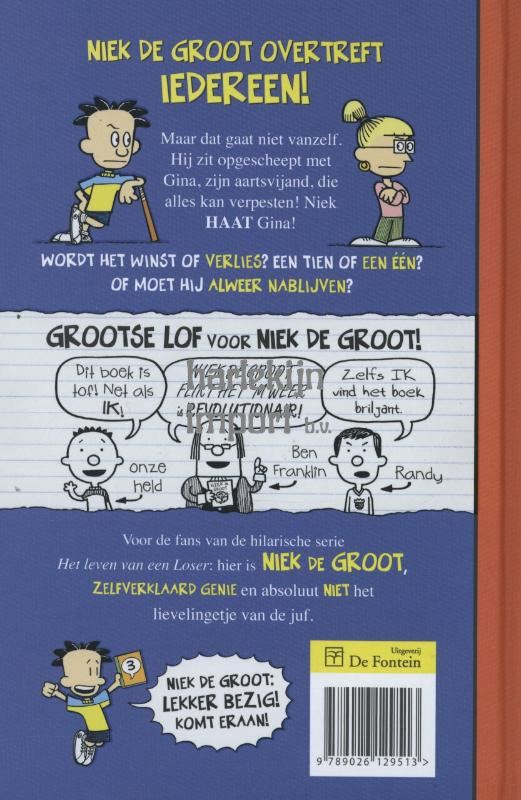 NIEK DE GROOT OVERTREFT
IEDEREEN!
Maar dat gaat niet vanzelf.
Hij zit opgescheept met
Gina, zijn aartsvijand, die
alles kan verpesten! Niek
HAAT Gina!
WORDT HET WINST OF VERLIES? EEN TIEN OF EEN ÉÉN?
OF MOET HIJ ALWEER NABLIJVEN?
GROOTSE LOF VOOR NIEK DE GROOT!
Dit boek is
tof! Net als
IK!
NIEK DE GROOT
FLIKT HET 'M WEER
is REVOLUTIONAIR!
Zelfs IK
vind het boek
briljant.
harlekijn
import b.v.
onze
held
NIEK DE
GROOT
Ben
Franklin
Randy
Voor de fans van de hilarische serie
Het leven van een Loser: hier is NIEK DE GROOT,
ZELFVERKLAARD GENIE en absoluut NIET het
lievelingetje van de juf.
3
NIEK DE GROOT:
LEKKER BEZIG!
KOMT ERAAN!
Uitgeverij
De Fontein
9 789026 129513 >